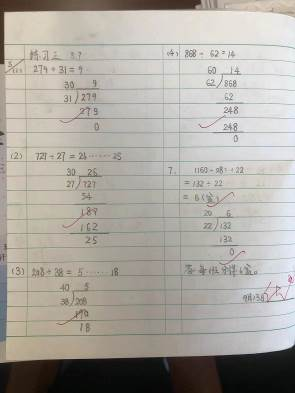 练习三 3.7
279÷31=9
30 9
31 279
279
0
(2) 727÷27=26……25
30 26
27 727
54
187
162
25
(3) 208÷38=5……18
40 5
38 208
190
18
(4) 868÷62=14
60 14
62 868
62
248
248
0
7.
=132÷22
=6(盆)
20 6
22 132
132
0
答:每班分得6盆。
9月13日